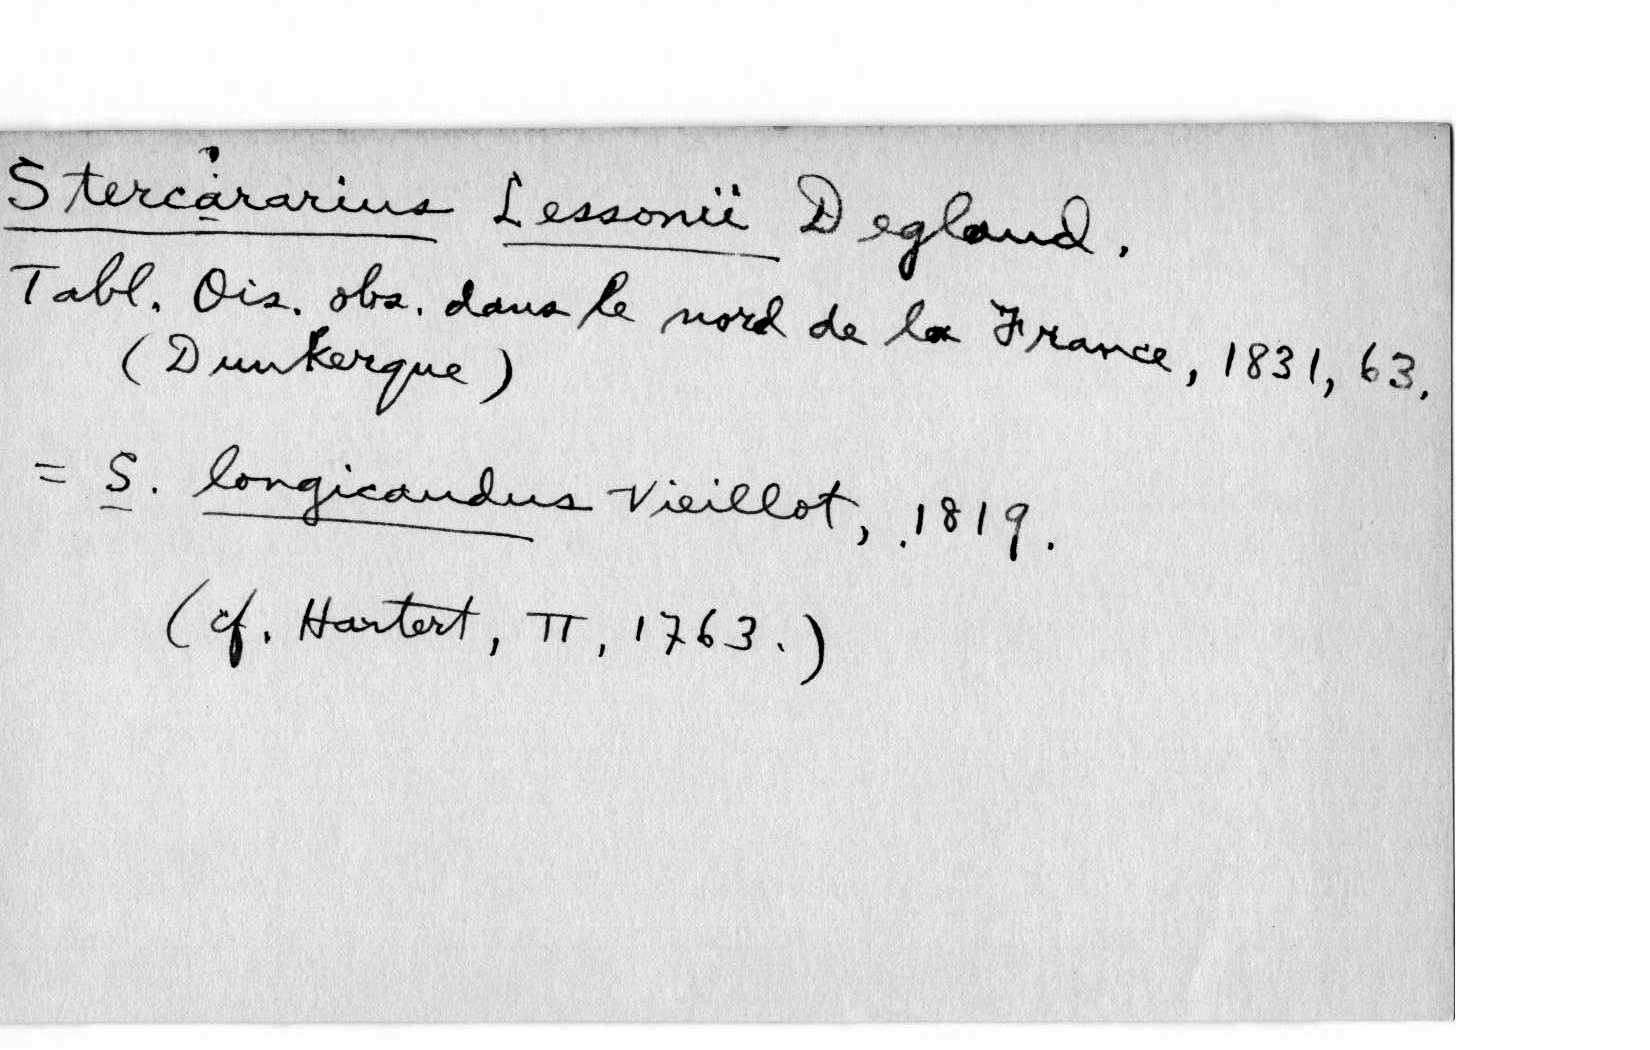 Stercararius Lessonii Degland.
Tabl. Ois. obs. dans le nord de la France, 1831, 63.
(Dunkerque)
= S. longicaudus Vieillot, 1819.
(cf. Hartert, II, 1763.)